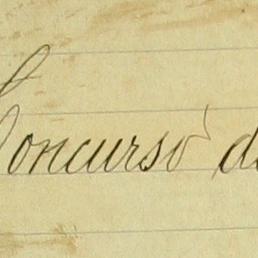 Concurso de